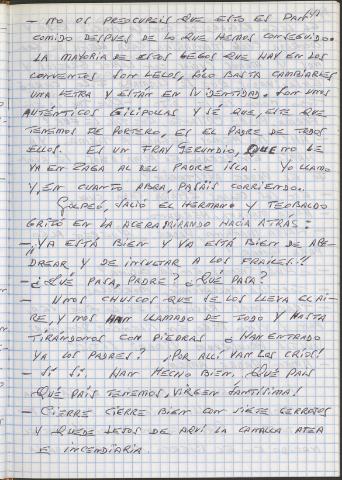 - NO OS PREOCUPEIS QUE ESTO ES PAN
COMIDO DESPUES DE LO QUE HEMOS CONSEGUIDO.
LA MAYORIA DE ESTOS LEGOS QUE HAY EN LOS
CONVENTOS SON LELOS, SÓLO BASTA CAMBIARLES
UNA LETRA Y ESTÁN EN SU IDENTIDAD. SON UNOS
AUTÉNTICOS GILIPOLLAS Y SÉ QUE, ESTE QUE
TENEMOS DE PORTERO, ES EL PADRE DE TODOS
ELLOS. ES UN FRAY GERUNDIO, QUE NO LE
VA EN ZAGA AL DEL PADRE ISLA. YO LLAMO
Y, EN CUANTO ABRA, PASÁIS CORRIENDO..
GOLPEÓ, SALIÓ EL HERMANO Y TEOBALDO
GRITÓ EN LA ACERA MIRANDO HACIA ATRÁS:
- ¡¡YA ESTÁ BIEN Y YA ESTÁ BIEN DE APE-
DREAR Y DE INSULTAR A LOS FRAILES!!
- ¿QUÉ PASA, PADRE? ¿QUÉ PASA?
- UNOS CHUSCOS QUE SE LOS LLEVA EL AI-
RE, Y NOS HAN LLAMADO DE TODO Y HASTA
TIRÁNDONOS CON PIEDRAS ¿HAN ENTRADO
YA LOS PADRES? ¡POR ALLÍ VAN LOS CRÍOS!
- SÍ SÍ. HAN HECHO BIEN. QUÉ PAÍS
QUÉ PAÍS TENEMOS, VIRGEN SANTÍSIMA!
- CIERRE CIERRE BIEN CON SIETE CERROJOS
Y QUEDE LEJOS DE AQUÍ LA CANALLA ATEA
E INCENDIARIA.